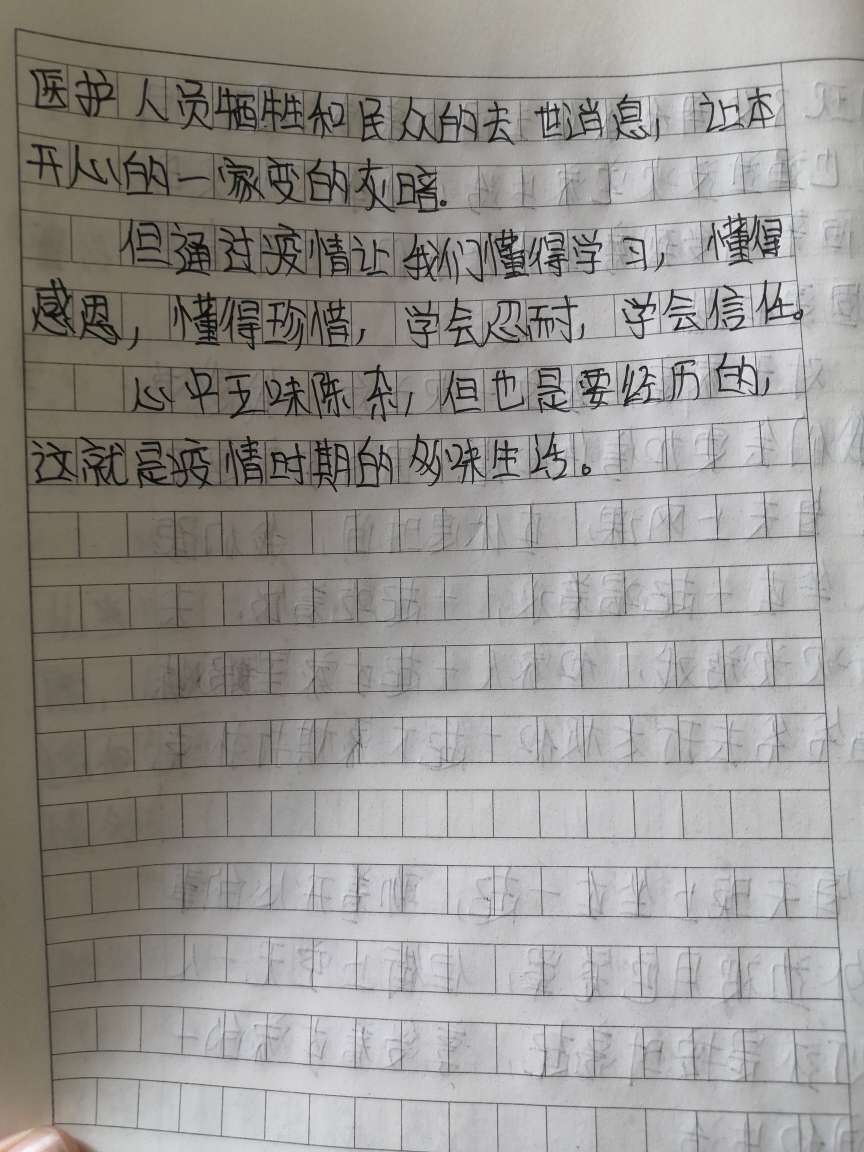 医护人员牺牲和民众的去世消息，让本
开心的一家变的灰暗.
但通过疫情让我们懂得学习，懂得
感恩，懂得珍惜，学会忍耐，学会信任。
心中五味陈杂，但也是要经历的，
这就是疫情时期的多味生活。